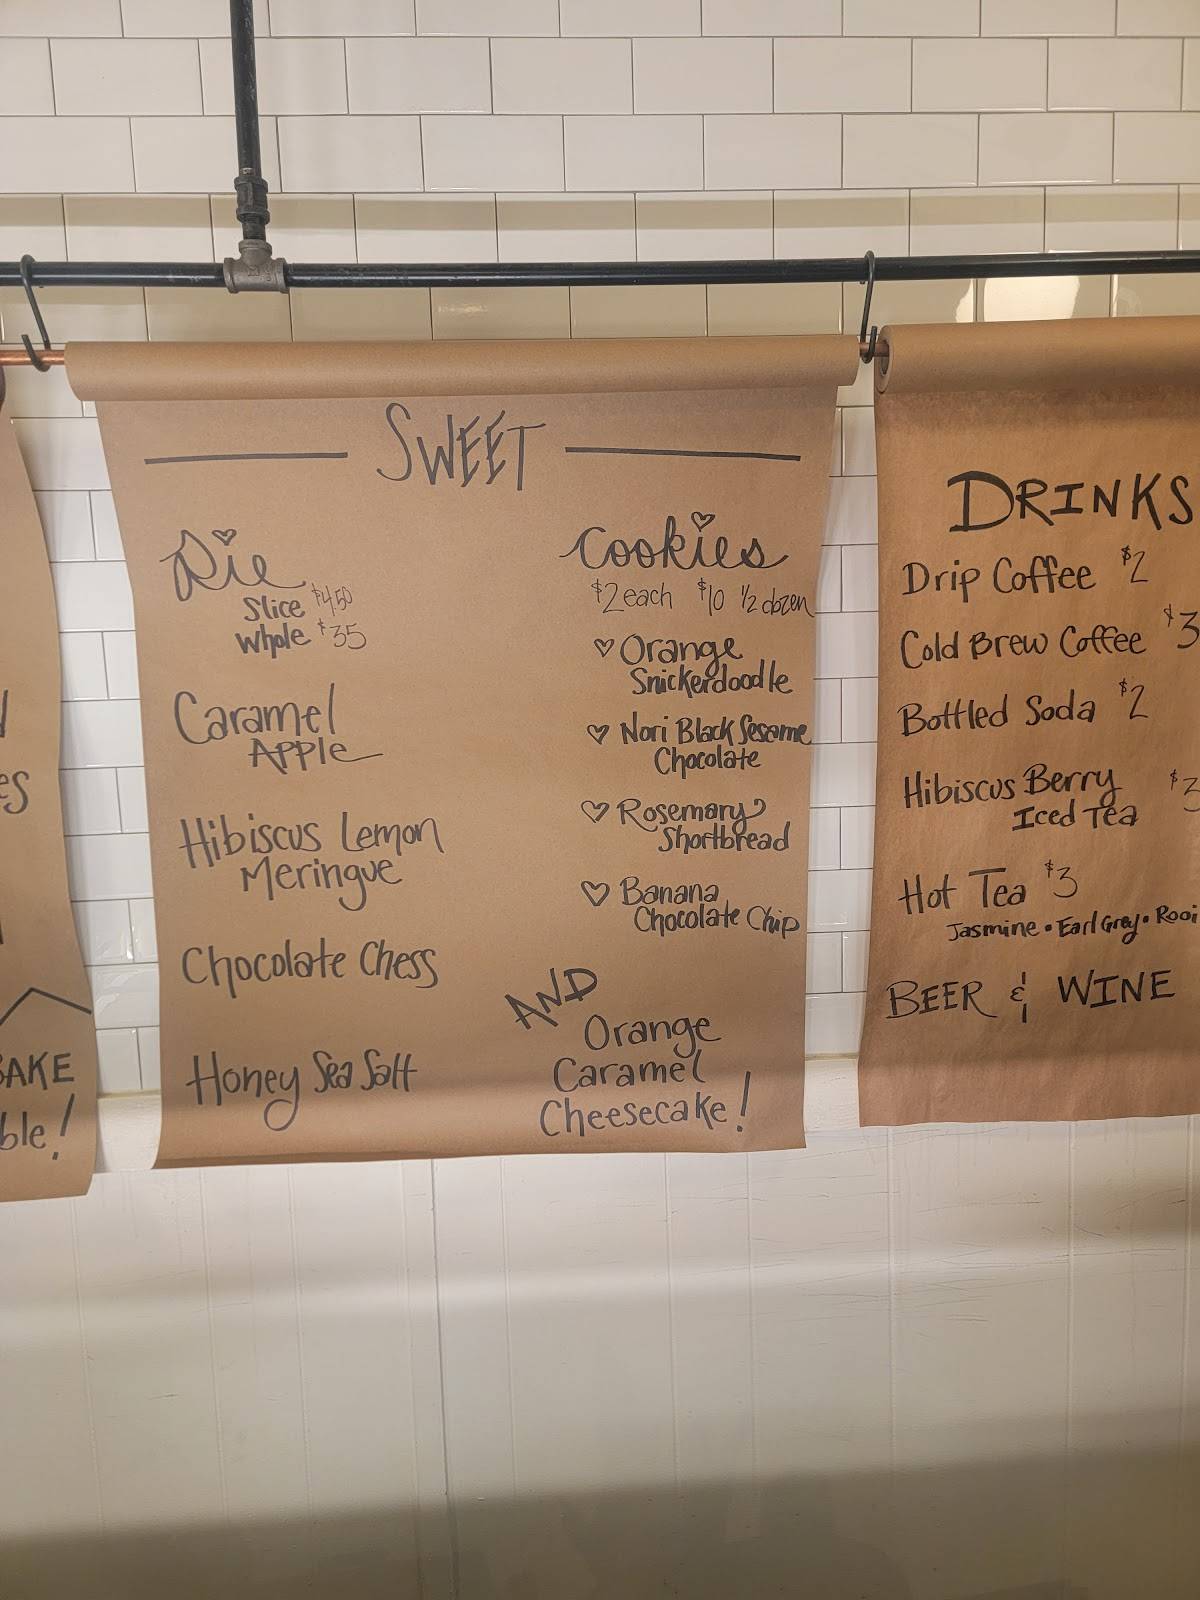 SWEET
Pie
Slice $4.50
Whole $35
Caramel
Apple
Hibiscus Lemon
Meringue
Chocolate Chess
Honey Sea Salt
Cookies
$2 each $10 1/2 dozen
Orange
Snickerdoodle
Nori Black Sesame
Chocolate
Rosemary
Shortbread
Banana
Chocolate Chip
AND
Orange
Caramel
Cheesecake!
DRINKS
Drip Coffee $2
Cold Brew Coffee $3
Bottled Soda $2
Hibiscus Berry $3
Iced Tea
Hot Tea $3
Jasmine • Earl Grey • Rooi
BEER & WINE